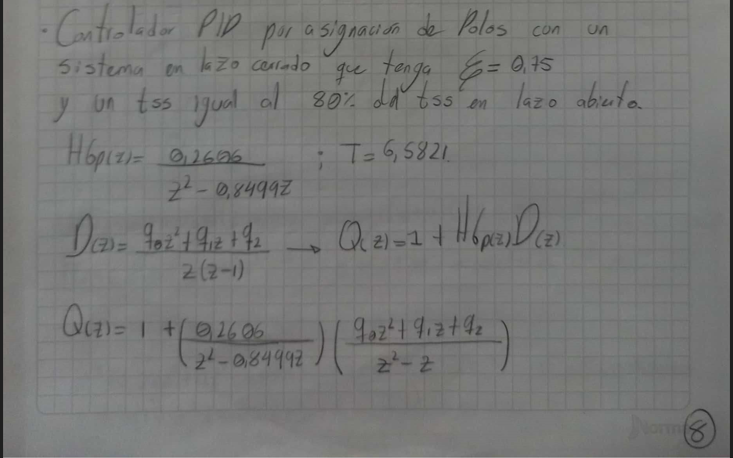 · Controlador PID por asignación de Polos con un
sistema en lazo cerrado que tenga ξ = 0,75
y un tss igual al 80% del tss en lazo abierto.
HGp(z) = 0,2606 / (z² - 0,8499z) ; T = 6,5821
D(z) = (q₀z² + q₁z + q₂) / (z(z-1)) → Q(z) = 1 + HGp(z)D(z)
Q(z) = 1 + (0,2606 / (z² - 0,8499z)) ((q₀z² + q₁z + q₂) / (z² - z))
Norma
8